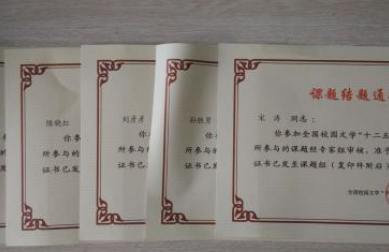 陈晓红
你参
所参与的
证书已发
刘彦彦
你参
所参与的
证书已发
孙胜男
你参
所参与的
证书已发
课题结题通
宋涛 同志：
你参加全国校园文学“十二五
所参与的课题经专家组审核，准予
证书已发至课题组（复印件附后）
全国校园文学“